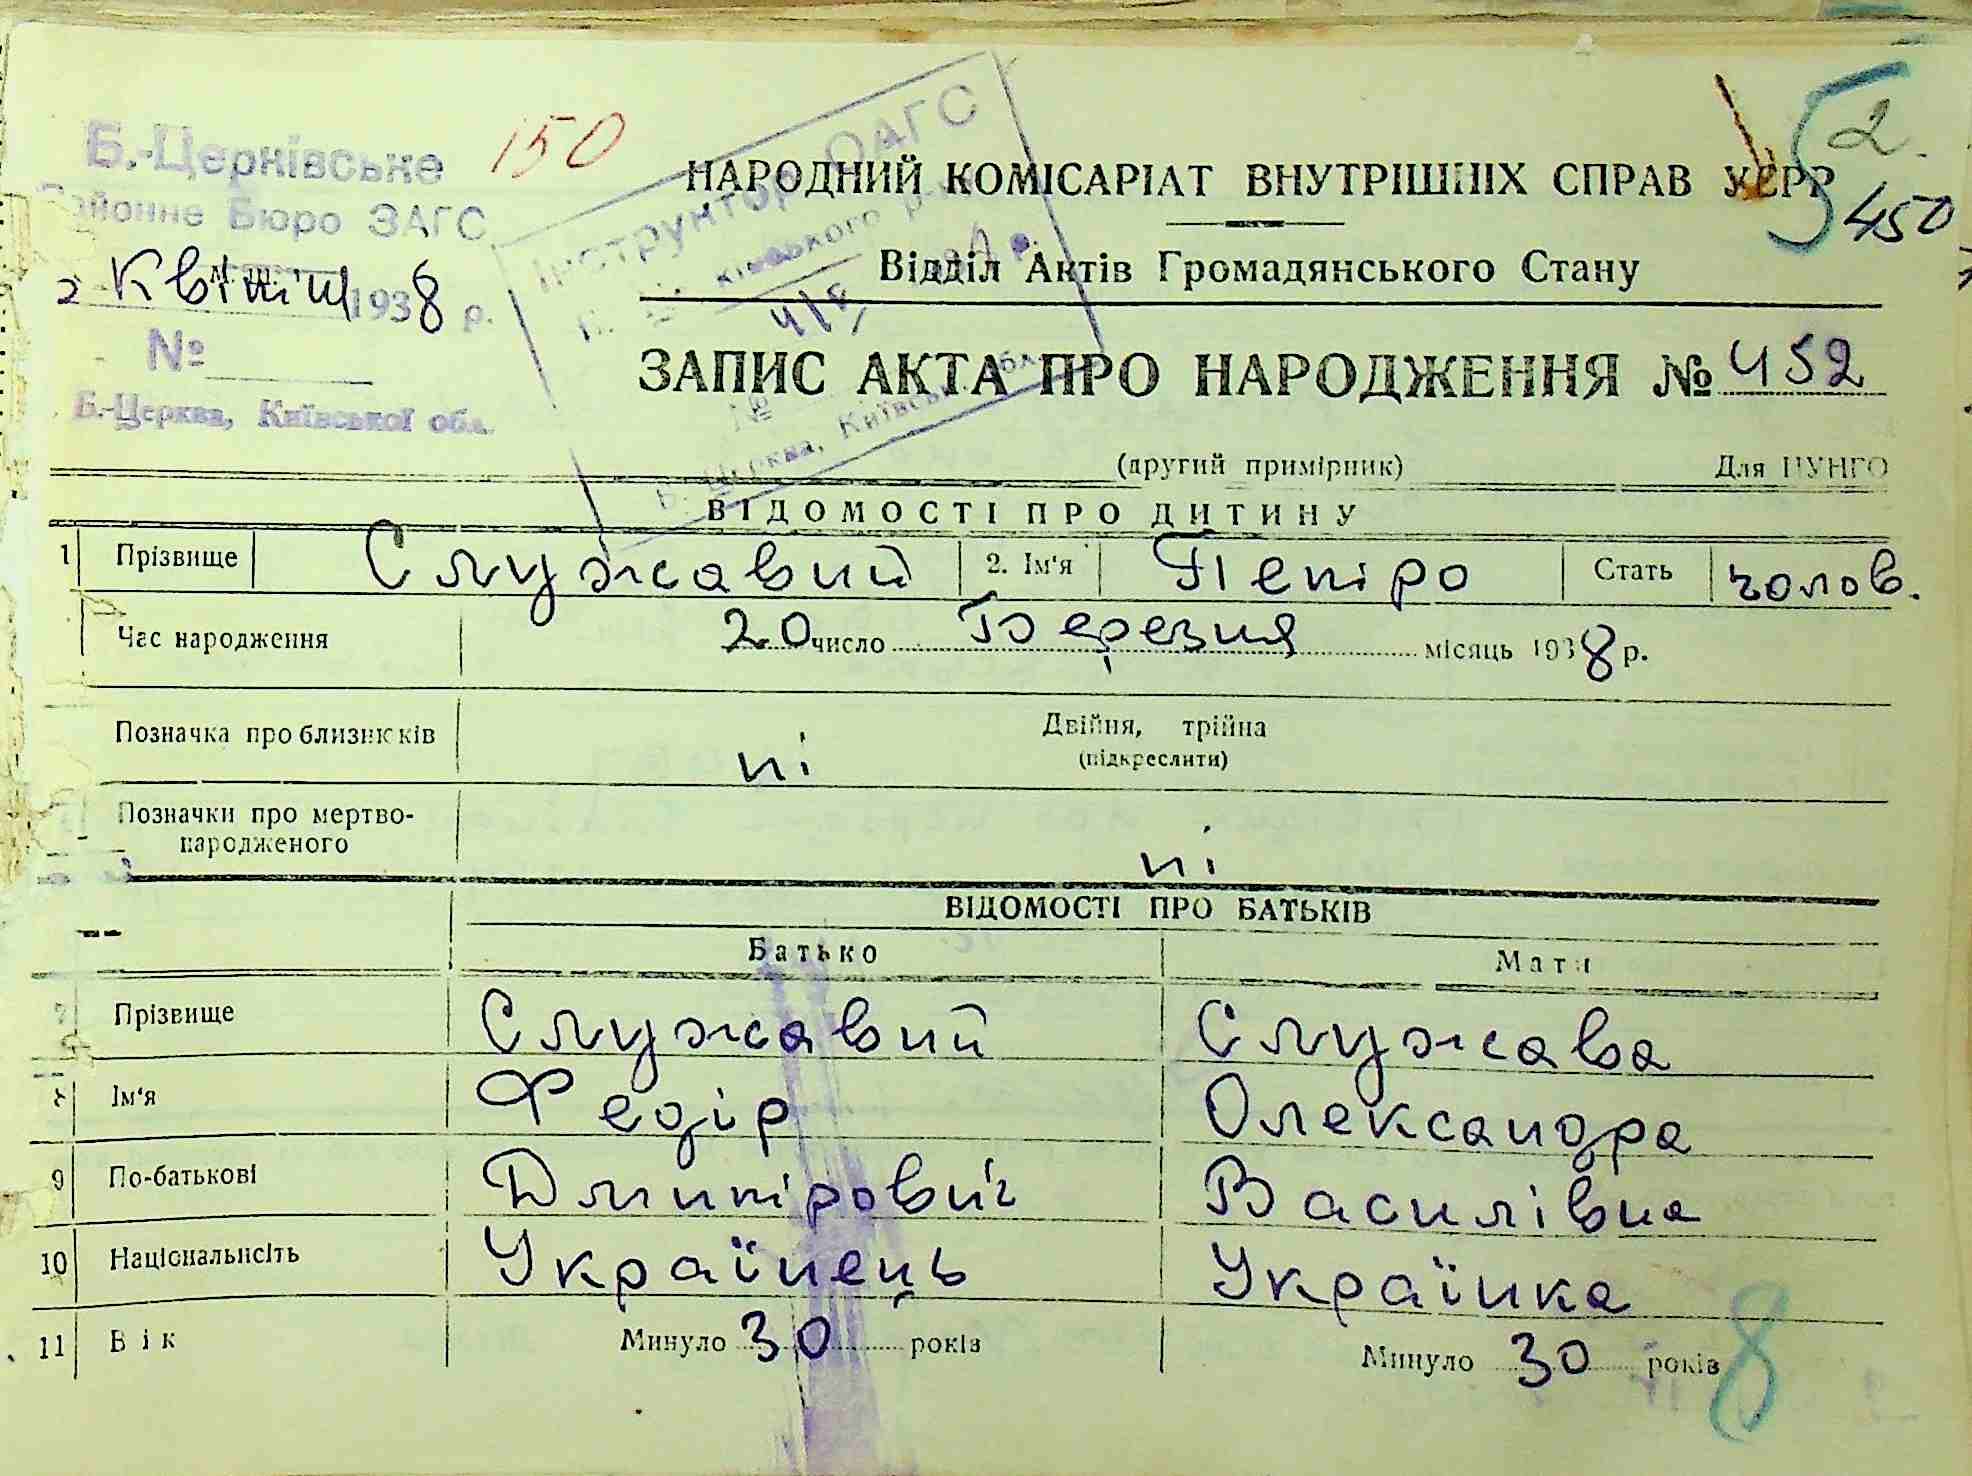 Б.-Церківське
Районне Бюро ЗАГС
2 Квітня 1938 р.
№
Б.-Церква, Київської обл.
150
Інструктор ОАГС
2
450
НАРОДНИЙ КОМІСАРІАТ ВНУТРІШНІХ СПРАВ УСРР
Відділ Актів Громадянського Стану
ЗАПИС АКТА ПРО НАРОДЖЕННЯ № 452
(другий примірник) Для ЦУНГО
ВІДОМОСТІ ПРО ДИТИНУ
1 Прізвище Служавий 2. Ім'я Петро Стать чолов.
Час народження 20 число Березня місяць 1938 р.
Позначка про близнюків ні Двійня, трійня
(підкреслити)
Позначки про мертво-
народженого ні
ВІДОМОСТІ ПРО БАТЬКІВ
Батько Мати
7 Прізвище Служавий Служава
8 Ім'я Федір Олександра
9 По-батькові Дмитрович Василівна
10 Національність Українець Українка
11 Вік Минуло 30 років Минуло 30 років
8